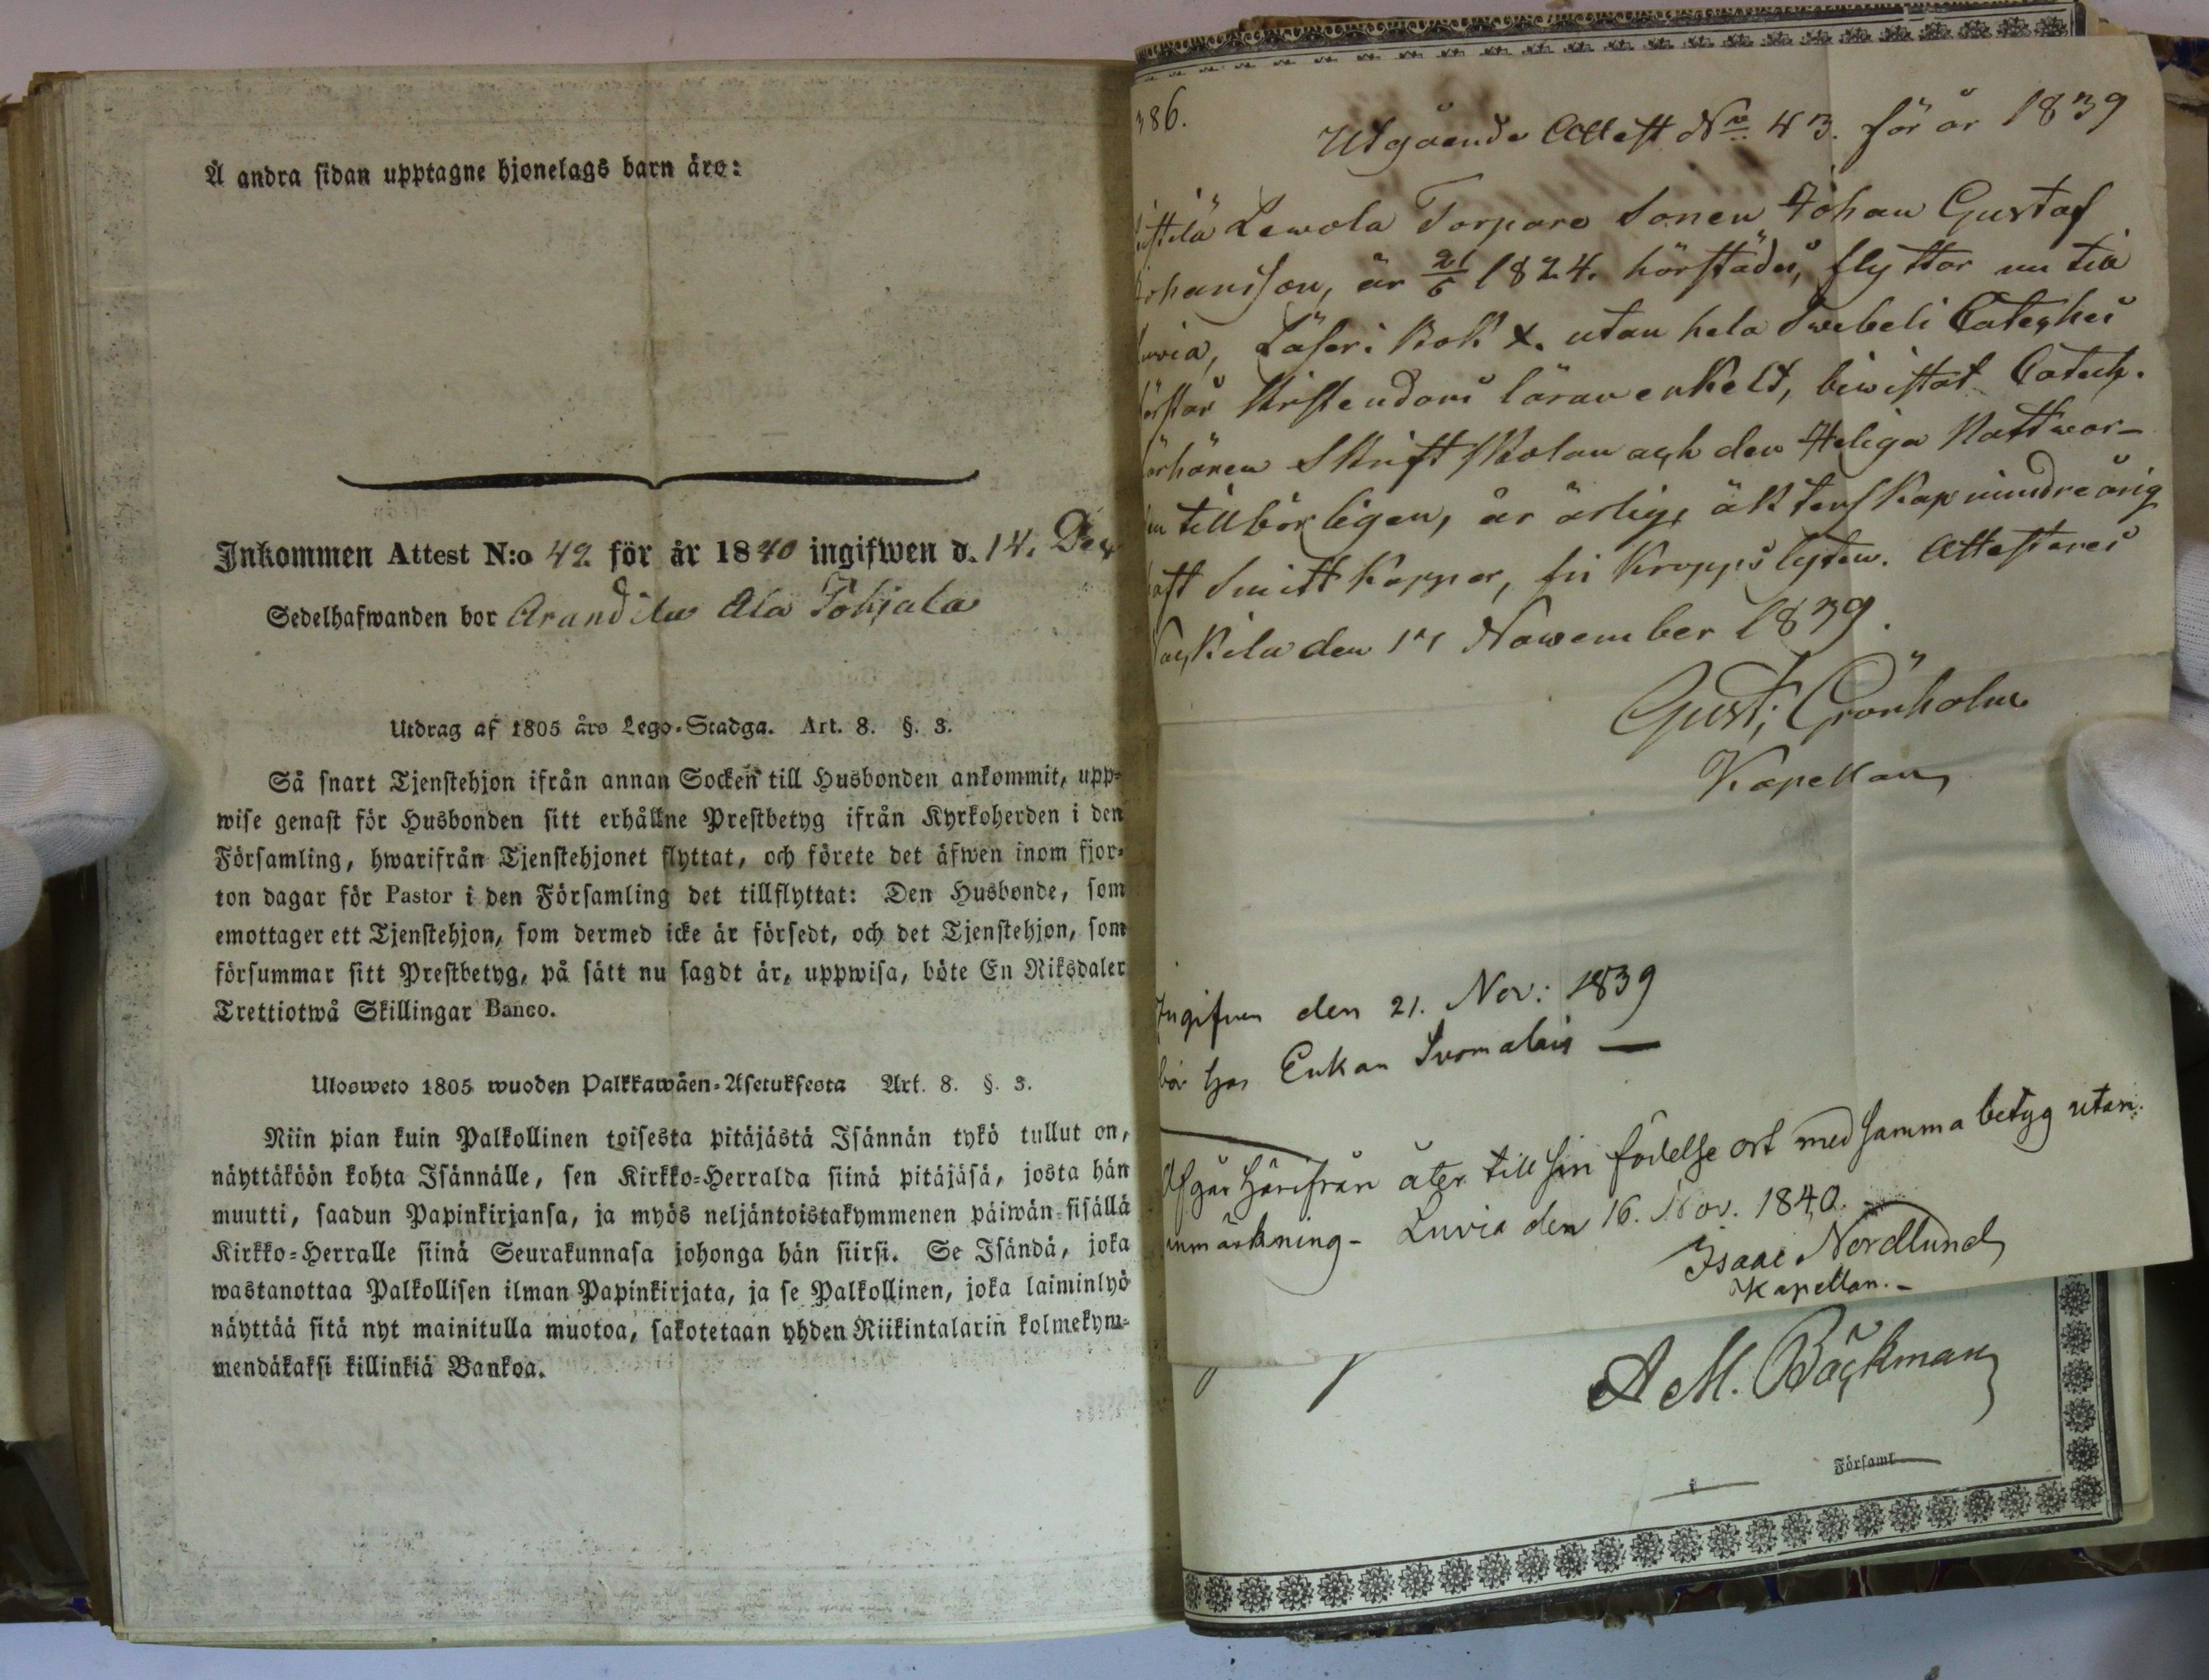 Å andra sidan upptagne hjonelags barn äro:
Inkommen Attest N:o 42 för år 1840 ingifwen d. 14. Dec
Sedelhafwanden bor Arandila Ala Pohjala
Utdrag af 1805 års Lego-Stadga. Art. 8. §. 3.
Så snart Tjenstehjon ifrån annan Socken till Husbonden ankommit, upp-
wise genast för Husbonden sitt erhållne Prestbetyg ifrån Kyrkoherden i den
Församling, hwarifrån Tjenstehjonet flyttat, och förete det äfwen inom fjor-
ton dagar för Pastor i den Församling det tillflyttat: Den Husbonde, som
emottager ett Tjenstehjon, som dermed icke är försedt, och det Tjenstehjon, som
försummar sitt Prestbetyg, på sätt nu sagdt är, uppwisa, böte En Riksdaler
Trettiotwå Skillingar Banco.
Ulosweto 1805 wuoden Palkkawäen-Asetuksesta Art. 8. §. 3.
Niin pian kuin Palkollinen toisesta pitäjästä Isännän tykö tullut on,
näyttäköön kohta Isännälle, sen Kirkko-Herralda siinä pitäjäsä, josta hän
muutti, saadun Papinkirjansa, ja myös neljäntoistakymmenen päiwän sisällä
Kirkko-Herralle siinä Seurakunnasa johonga hän siirsi. Se Isändä, joka
wastanottaa Palkollisen ilman Papinkirjata, ja se Palkollinen, joka laiminlyö
näyttää sitä nyt mainitulla muotoa, sakotetaan yhden Riikintalarin kolmekym-
mendäkaksi killinkiä Bankoa.
386.
Utgående Attest No. 43. för år 1839
Lewola Torpare Sonen Johan Gustaf
Johansson, är 21/6 1824. härstädes, flyttar nu till
Luvia, Läser i Bok x. utan hela Swebeli Cateches
förstår Kristendoms läran enkelt, biwistat Catech.
förhören Skriftskolan och den Heliga Nattwar-
den tillbörligen, är ärlig, äktenskap minderårig
haft Smittkoppor, fri Kroppslyten. Attesteres
den 17 November 1839.
Gust. Grönholm
Kapellan
Ingifven den 21. Nov: 1839
bor hos Enkan Suomalais —
Afgår härifrån åter till sin födelse ort med samma betyg utan
anmärkning - Luvia den 16. Nov. 1840.
Isaac Nordlund
Kapellan. -
A M. Bäckman
Församl